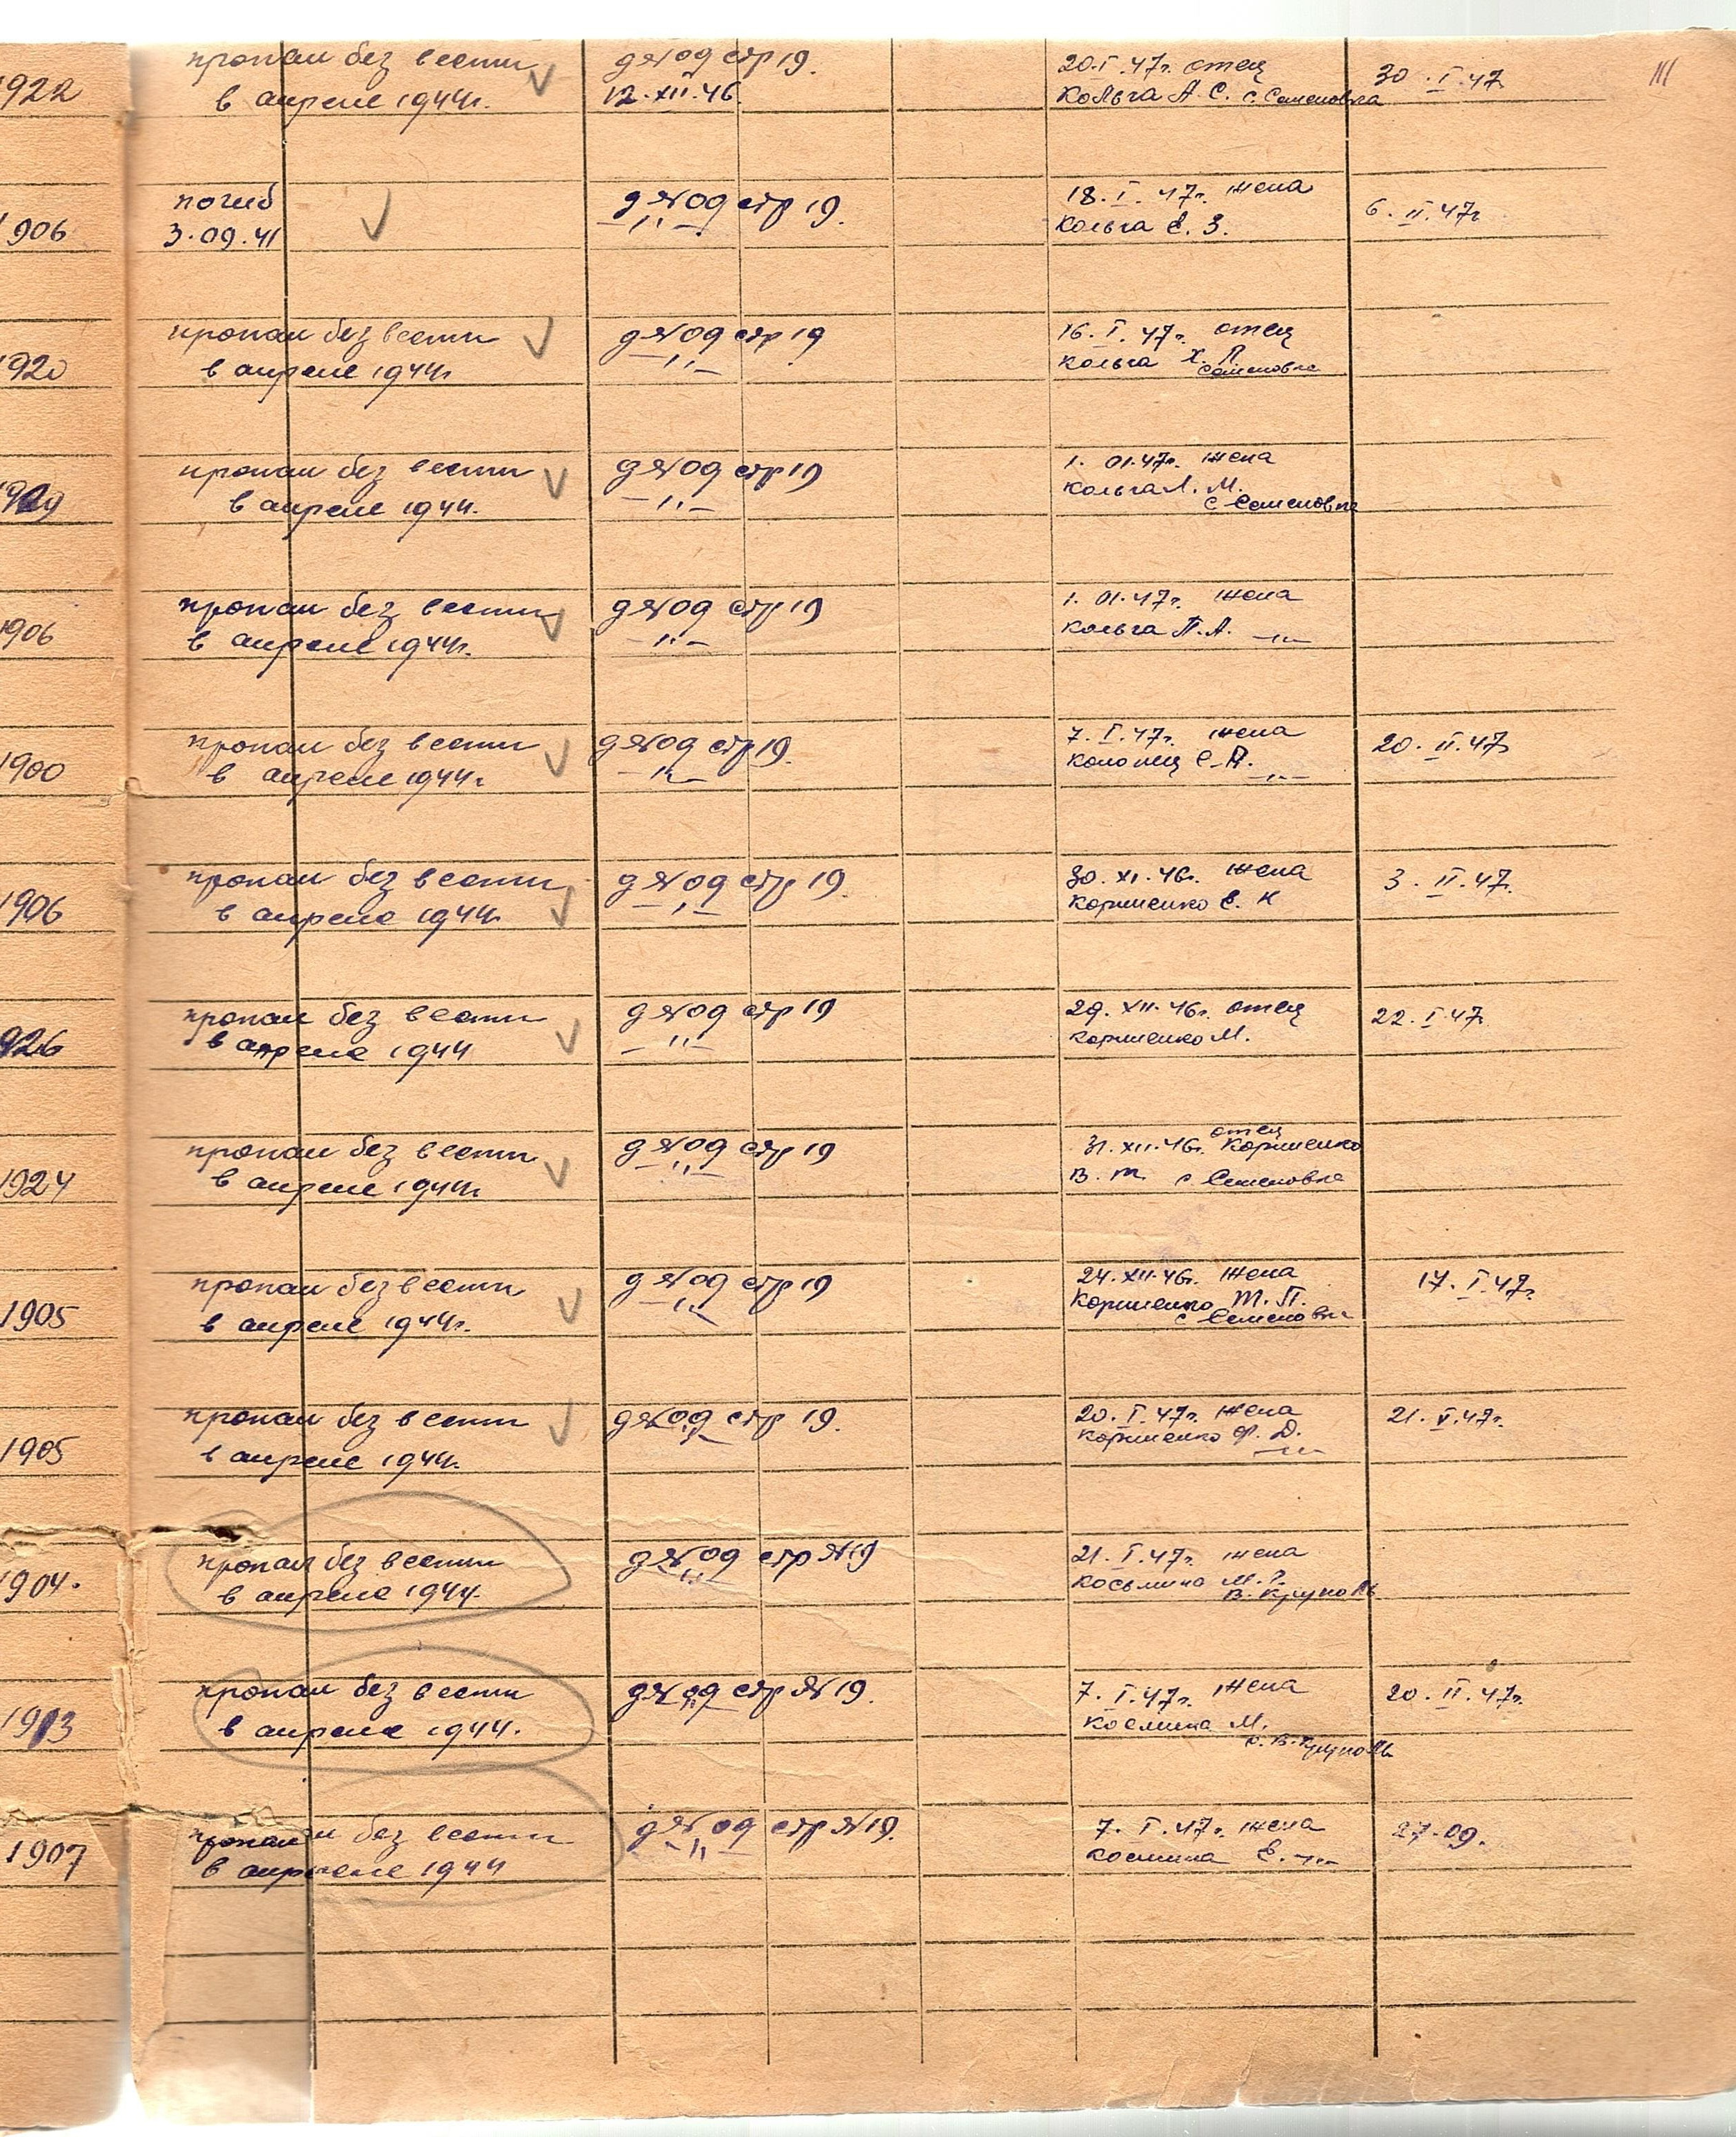 111
1922 пропал без вести д№09 стр 19. 20.I.47г. отец 30.I.47
в апреле 1944г. 12.XII.46 Кольга А С. с. Семеновка
1906 погиб д№09 стр 19. 18.I.47г. жена 6.II.47г
3.09.41 —"— Кольга Е. З.
1920 пропал без вести д№09 стр 19 16.I.47г. отец
в апреле 1944г —"— Кольга Х. П. Семеновка
пропал без вести д№09 стр 19 1.01.47г. жена
в апреле 1944. —"— Кольга Л. М.
с Семеновка
1906 пропал без вести д№09 стр 19 1.01.47г. жена
в апреле 1944г. —"— Кольга П.А. —"—
1900 пропал без вести д№09 стр 19. 7.I.47г. жена 20.II.47г
в апреле 1944г —"— —"—
1906 пропал без вести д№09 стр 19. 30.XI.46г. жена 3.II.47г.
в апреле 1944г. —"— Коршенко Е. К
1926 пропал без вести д№09 стр 19 29.XII.46г. отец 22.I.47г
в апреле 1944 —"— Коршенко М.
1924 пропал без вести д№09 стр 19 31.XII.46г. отец Коршенко
в апреле 1944г. —"— В. Т. с. Семеновка
1905 пропал без вести д№09 стр 19 24.XII.46г. жена 17.I.47г.
в апреле 1944г. —"— Коршенко Т. П.
с Семеновка
1905 пропал без вести д№09 стр 19. 20.I.47г. жена 21.V.47г.
в апреле 1944г. —"— Коршенко Ф. Д. —"—
1904. пропал без вести д№09 стр №19 21.I.47г. жена
в апреле 1944. —"— Косьмина М.
1913 пропал без вести д№09 стр №19. 7.I.47г. жена 20.II.47г.
в апреле 1944. —"— Космина М.
1907 пропал без вести д№09 стр №19. 7.I.47г. жена 27.09.
в апреле 1944 —"— Космина Е. —"—